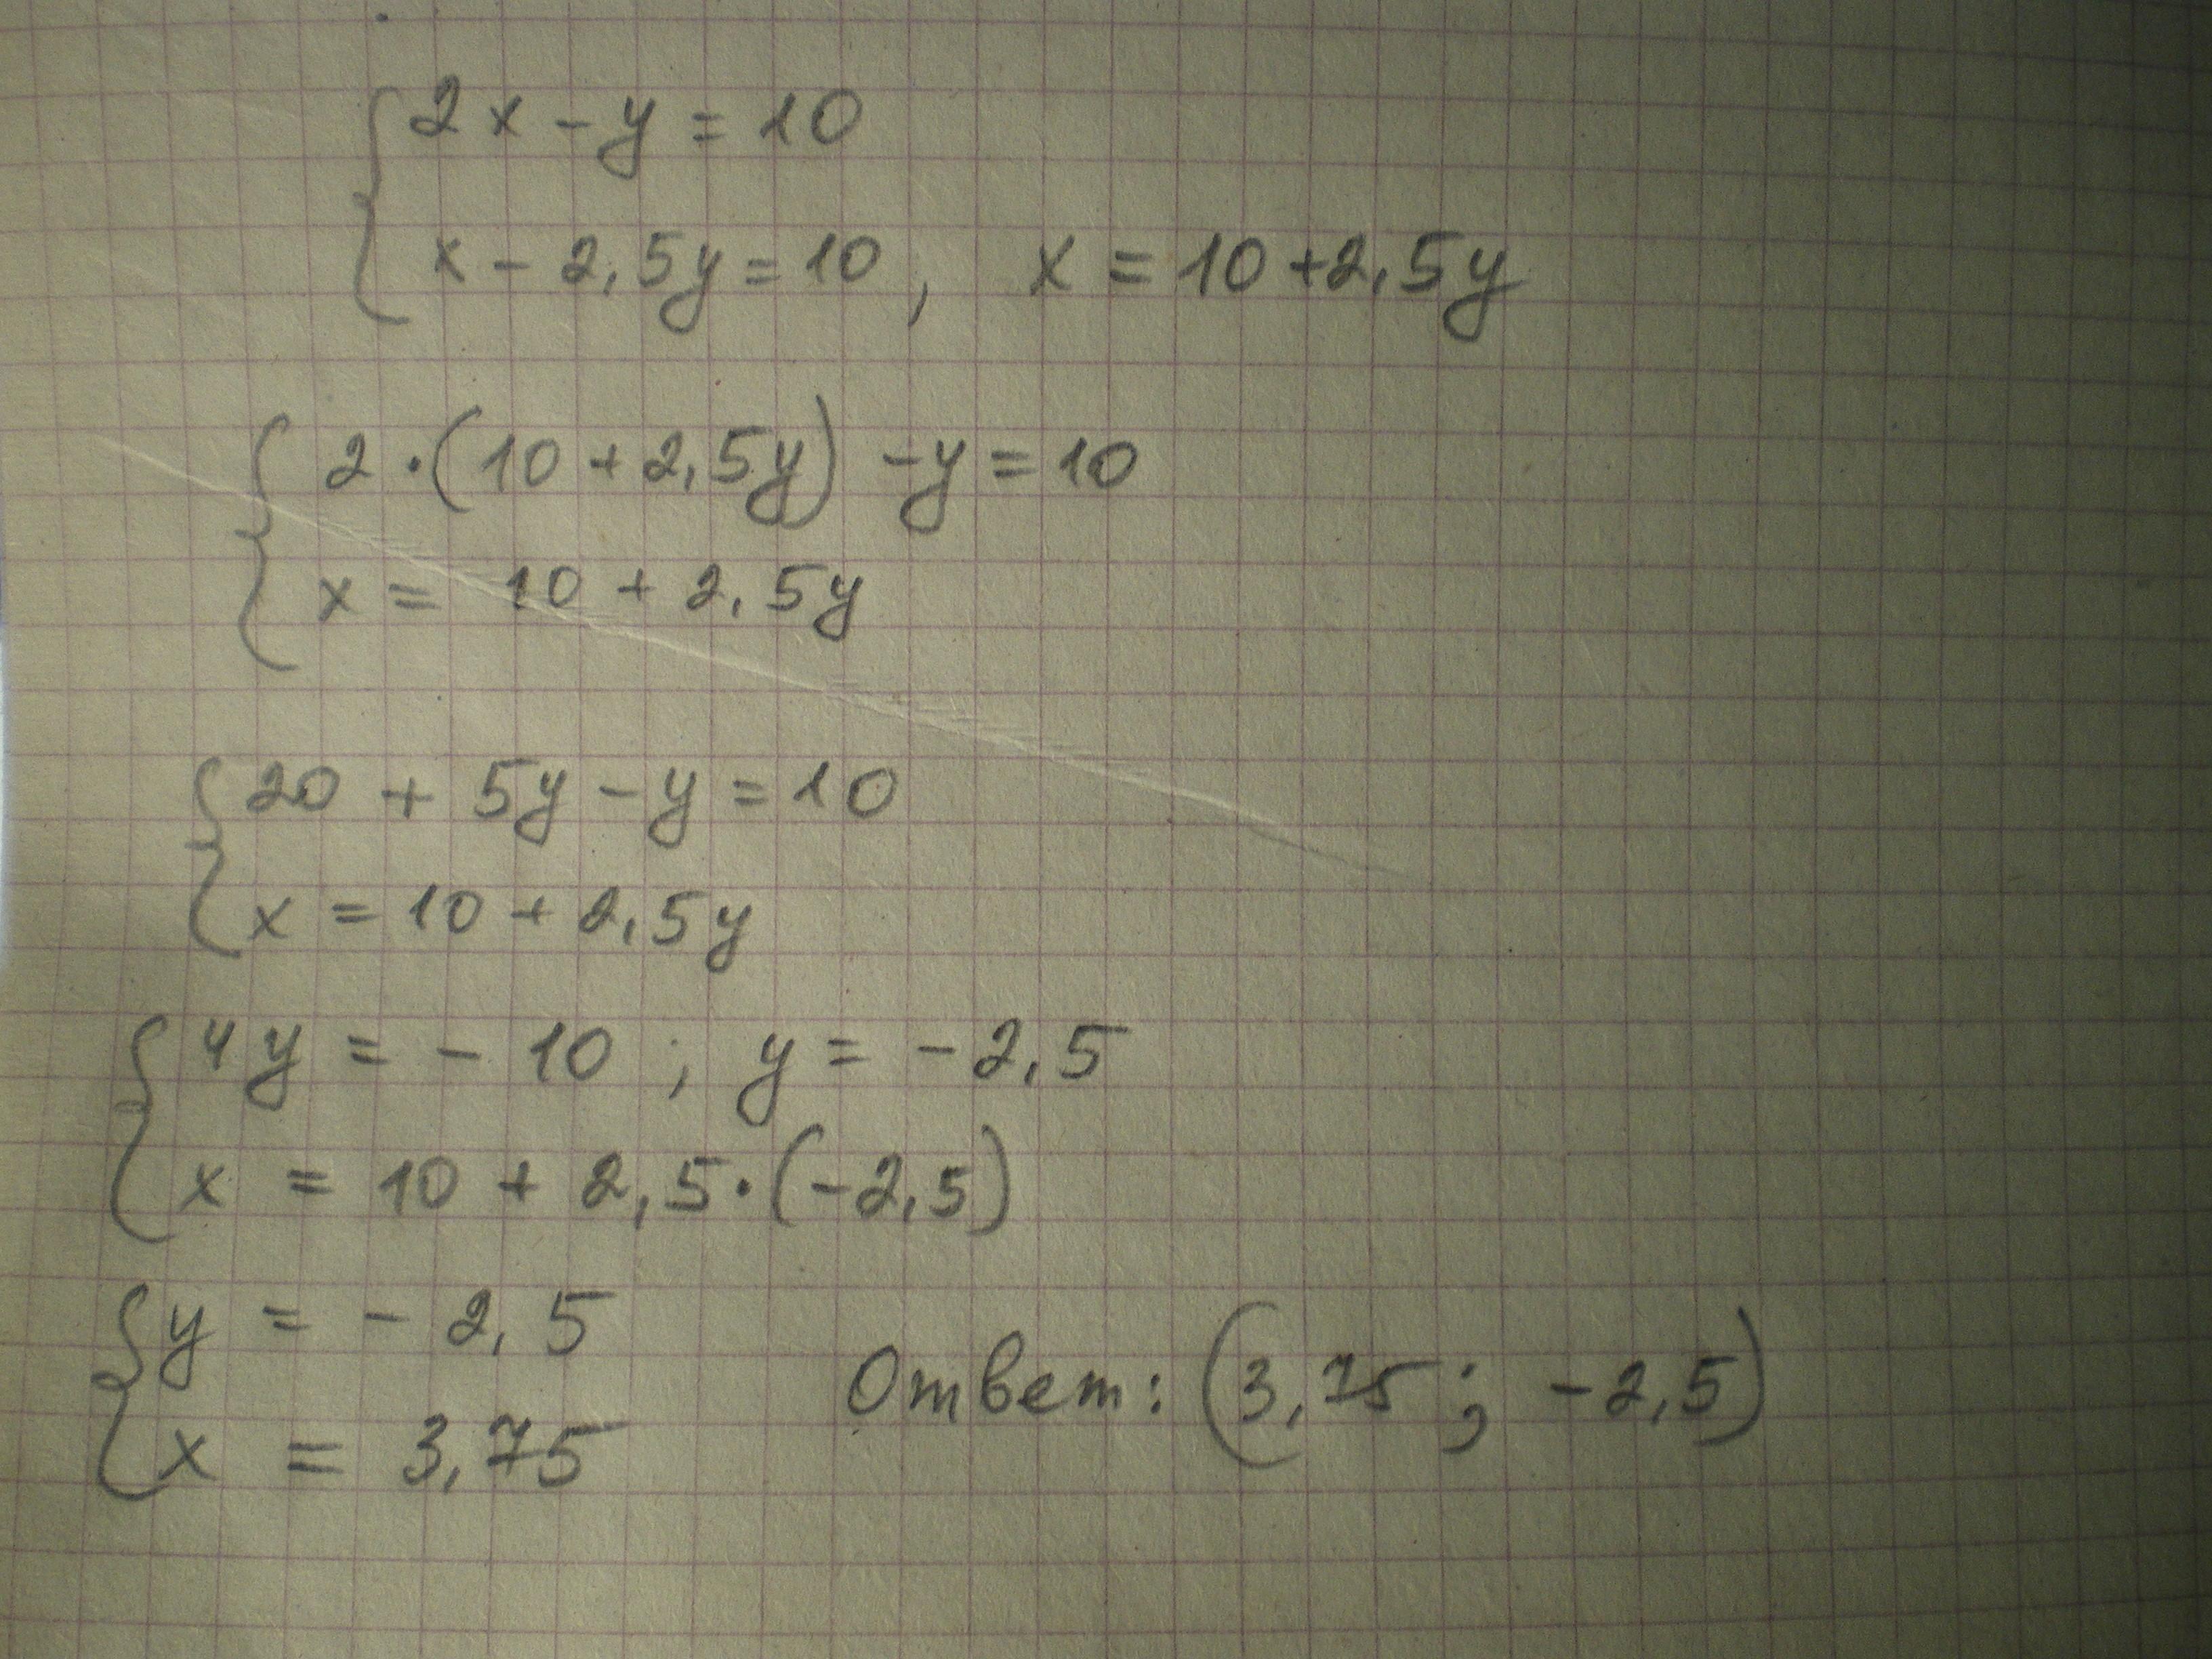 2x - y = 10
x - 2,5y = 10 , x = 10 + 2,5y
2 · (10 + 2,5y) - y = 10
x = 10 + 2,5y
20 + 5y - y = 10
x = 10 + 2,5y
4y = - 10 ; y = - 2,5
x = 10 + 2,5 · (-2,5)
y = - 2,5
x = 3,75
Ответ: (3,75 ; - 2,5)